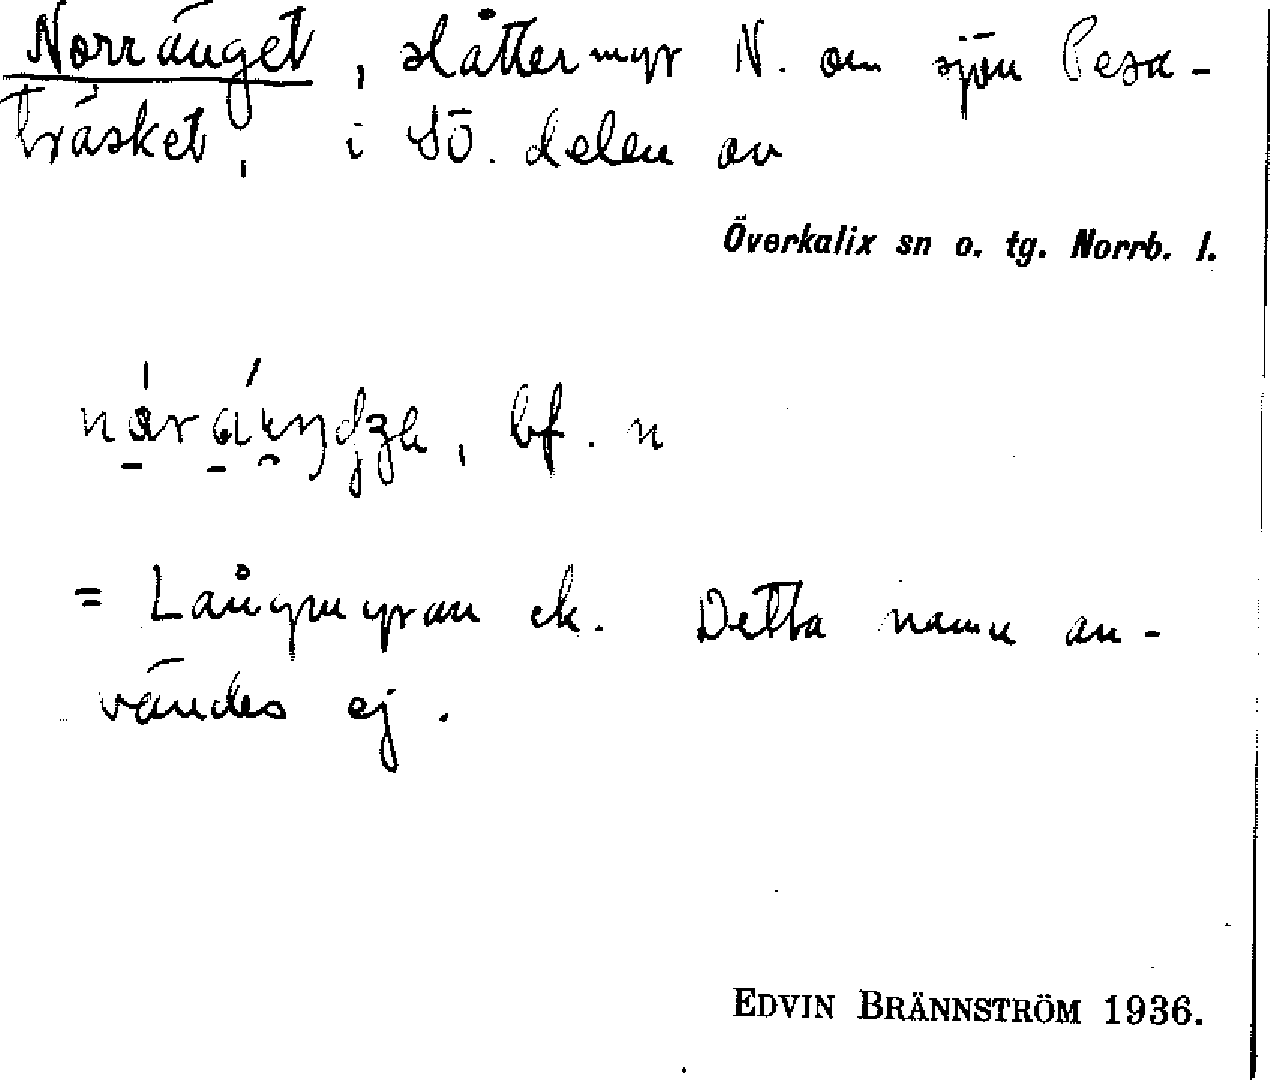 Norränget, slåttermyr N. om sjön Pesa-
träsket, i SÖ. delen av
Överkalix sn o. tg. Norrb. l.
bf. n
= Långmyran ek. Detta namn an-
vändes ej.
EDVIN BRÄNNSTRÖM 1936.